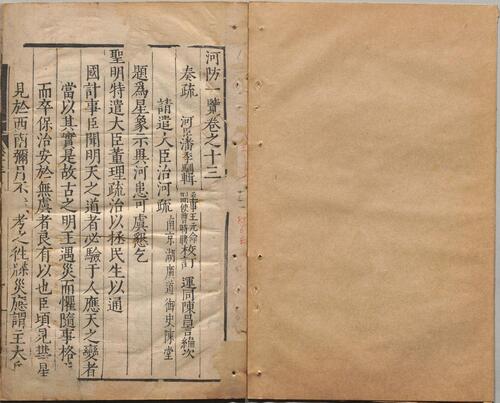 河防一覽卷之十三
奏疏 河臣潘季馴輯 王元命校訂 運同陳昌言編次
請遣大臣治河疏 南京湖廣道御史陳堂
題為星象示異河患可虞懇乞
聖明特遣大臣董理疏治以拯民生以通
國計事臣聞明天之道者必驗于人應天之變者
當以其實是故古之明王遇災而懼隨事格
而卒保治安於無虞者良有以也臣頃見彗星
見於西南彌月不 考之徃牒災應謂主大